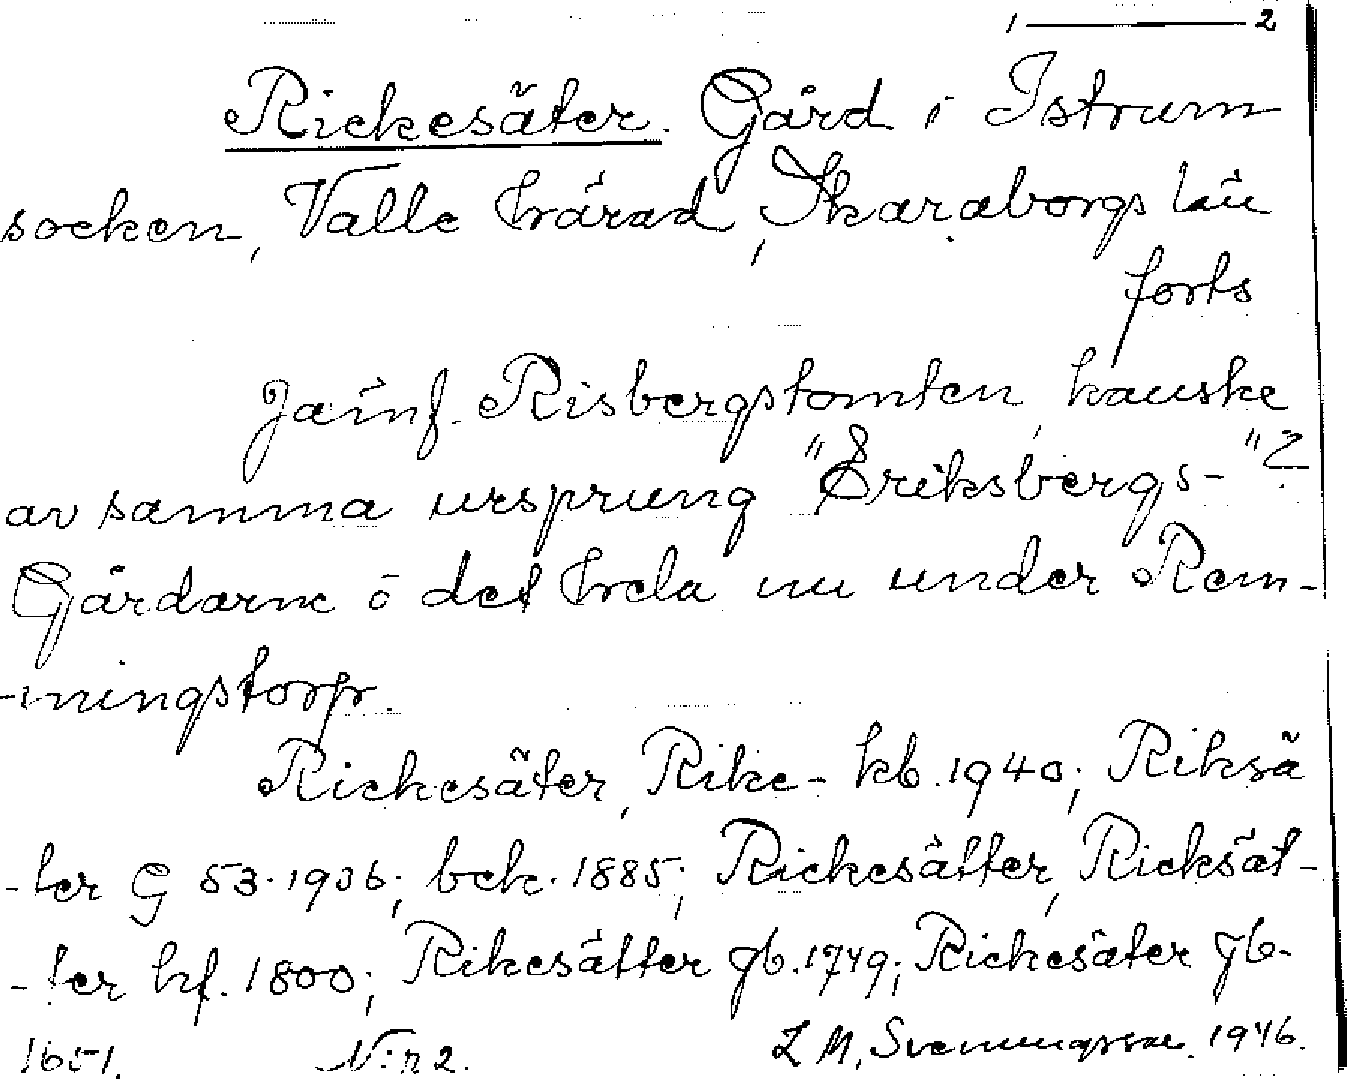 1 — 2
Rickesäter. Gård i Istrum
socken, Valle härad, Skaraborgs län
forts
Jämf. Risbergstomten, kanske
av samma ursprung "Eriksbergs-"?
Gårdarne ö det hela nu under Rem-
-mingstorp.
Rickesäter, Rike- kb. 1940; Riksä
-ter G 53. 1936; bek. 1885; Rickesätter, Ricksät-
-ter hf. 1800; Rikesätter jb. 1749; Rickesäter jb-
1651. N:r 2. L M, Svenungsson. 1946.